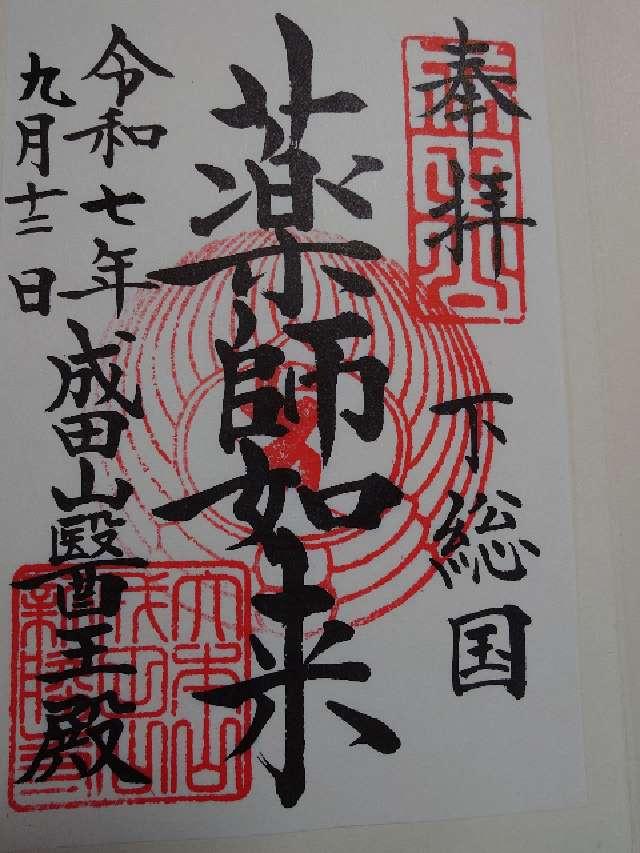 奉拝
下総国
薬師如来
令和七年
成田山醫王殿
九月十二日